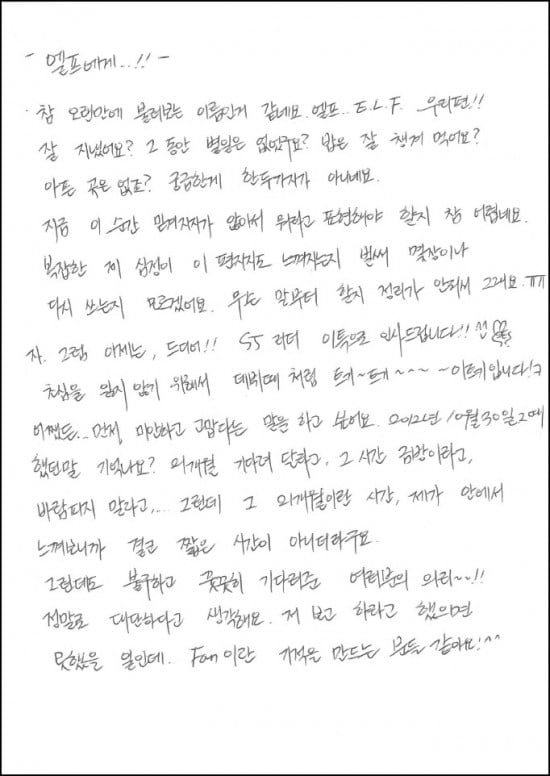 - 엘프에게..!! -
· 참 오랜만에 불러보는 이름인거 같네요. 엘프.. E.L.F. 우리편!!
잘 지냈어요? 그 동안 별일은 없었구요? 밥은 잘 챙겨 먹어요?
아픈 곳은 없죠? 궁금한게 한두가지가 아니네요.
지금 이 순간 믿겨지지가 않아서 뭐라고 표현해야 할지 참 어렵네요.
복잡한 제 심정이 이 편지지도 느껴지는지 벌써 몇장이나
다시 쓰는지 모르겠어요. 무슨 말부터 할지 정리가 안되서 그래요. ㅠㅠ
자. 그럼 이제는, 드디어!! SJ 리더 이특으로 인사드립니다!! ^^
초심을 잃지 않기 위해서 데뷔때 처럼 트기~트기~~~~ ~이트기입니다!
어쨌든.. 먼저, 미안하고 고맙다는 말을 하고 싶어요. 2012년 10월 30일 2때
했던말 기억나요? 21개월 기다려 달라고, 그 시간 금방이라고,
바람피지 말라고,.... 그런데 그 21개월이란 시간, 제가 안에서
느껴보니까 결코 짧은 시간이 아니더라구요.
그런데도 불구하고 꿋꿋히 기다려준 여러분의 의리~~!!
정말로 대단하다고 생각해요. 저 보고 하라고 했으면
못했을 일인데. Fan이란 기적을 만드는 분들 같아요!^^